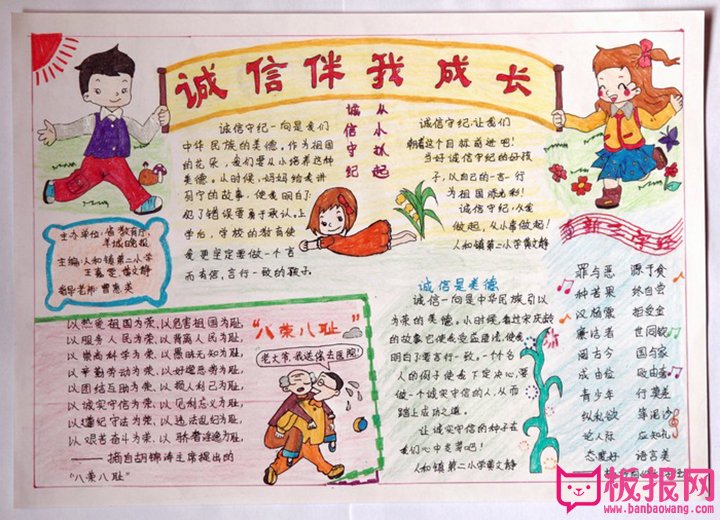 诚信伴我成长
从小扒起
诚信守纪
诚信守纪一向是我们
中华民族的美德，作为祖国
的花朵，我们要从小培养这种
美德。从时候，妈妈给我讲
列宁的故事，使我明白了：
犯了错误要勇于承认。上
学台，学校的教育使
我更坚定要做一个言
而有信，言行一致的孩子。
诚信守纪，让我们
朝着这个目标前进吧！
当好诚信守纪的好孩
子，以自己的一言一行
为祖国添光彩！
诚信守纪，从我
做起，从小事做起！
人和镇第二小学黄文静
主办单位：省教育厅、
羊城晚报
主编：人和镇第二小学
黄文静
指导老师：曹惠英
以热爱祖国为荣，以危害祖国为耻，
以服务人民为荣，以背离人民为耻，
以崇尚科学为荣，以愚昧无知为耻，
以辛勤劳动为荣，以好逸恶劳为耻，
以团结互助为荣，以损人利己为耻，
以诚实守信为荣，以见利忘义为耻，
以遵纪守法为荣，以违法乱纪为耻，
以艰苦奋斗为荣，以骄奢淫逸为耻。
——摘自胡锦涛主席提出的
“八荣八耻”
“八荣八耻”
老大爷，我送您去医院！
诚信是美德
诚信一向是中华民族引以
为荣的美德。小时候，看过宋庆龄
的故事它使我受益匪浅，使我
明白了要言行一致。一个个名
人的例子使我下定决心，要
做一个诚实守信的人，从而
踏上成功之道。
让诚实守信的种子在
我们心中发芽吧！
人和镇第二小学黄文静
罪与恶 源于贪
种苦果 终自尝
汉杨震 拒受金
廉洁者 世同钦
阅古今 国与家
成由俭 败由奢
青少年 行莫差
纵私欲 等泥沙
论人际 应知礼
态度好 语言美
板报网
www.banbaowang.com